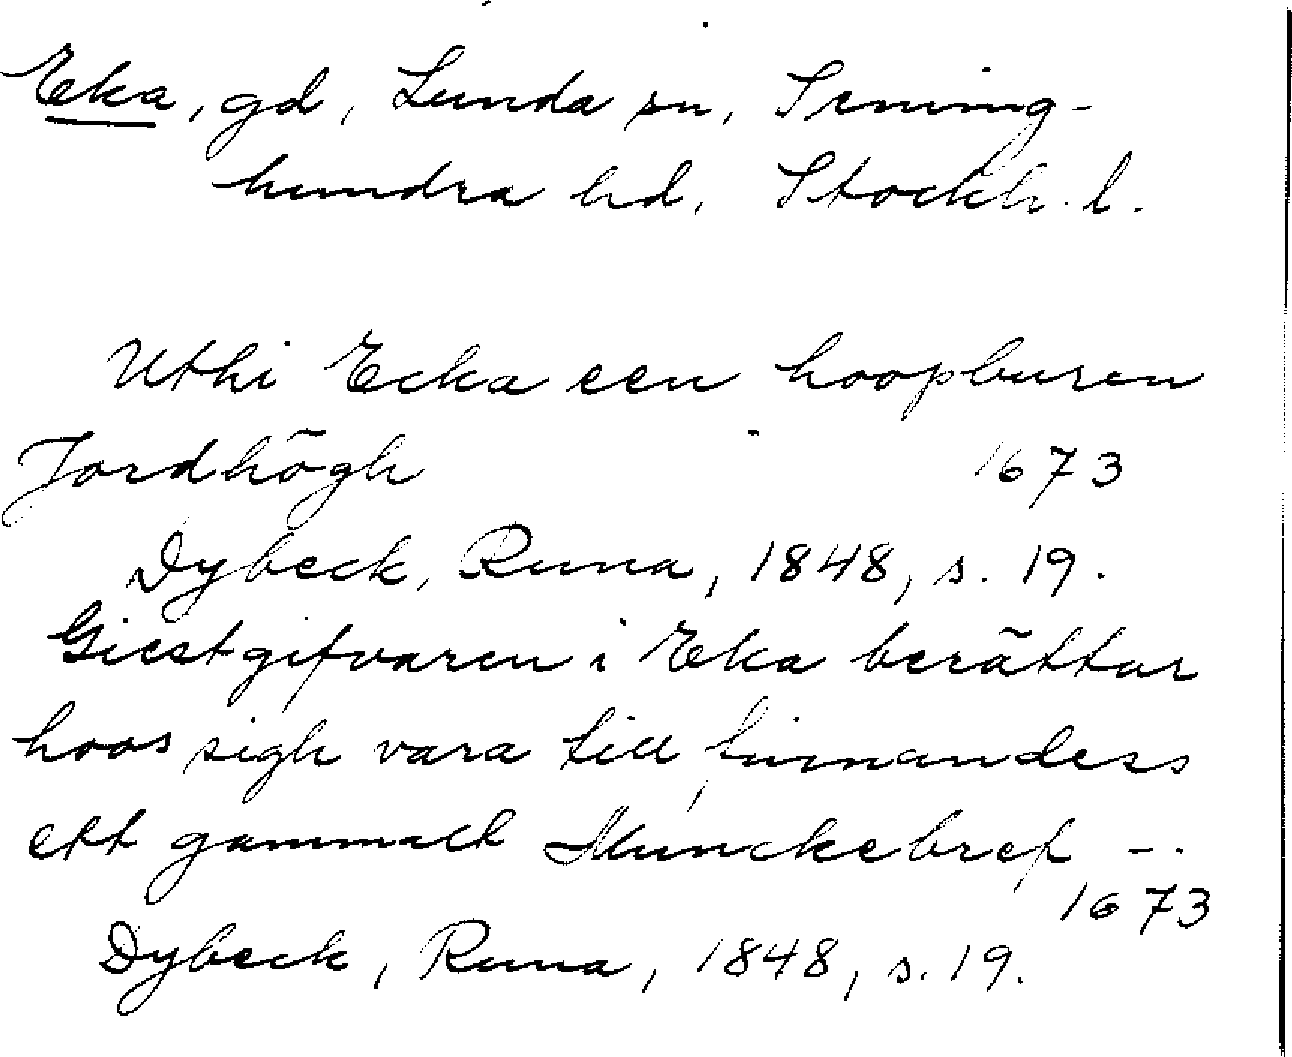 Eka, gd, Lunda sn, Seming-
hundra hd, Stockh. l.
Uthi Ecka een hoopburen
Jordhögh 1673
Dybeck, Runa, 1848, s. 19.
Giestgifvaren i Eka berättar
hoos sigh vara till finnandess
ett gammalt Munckebref --
1673
Dybeck, Runa, 1848, s. 19.